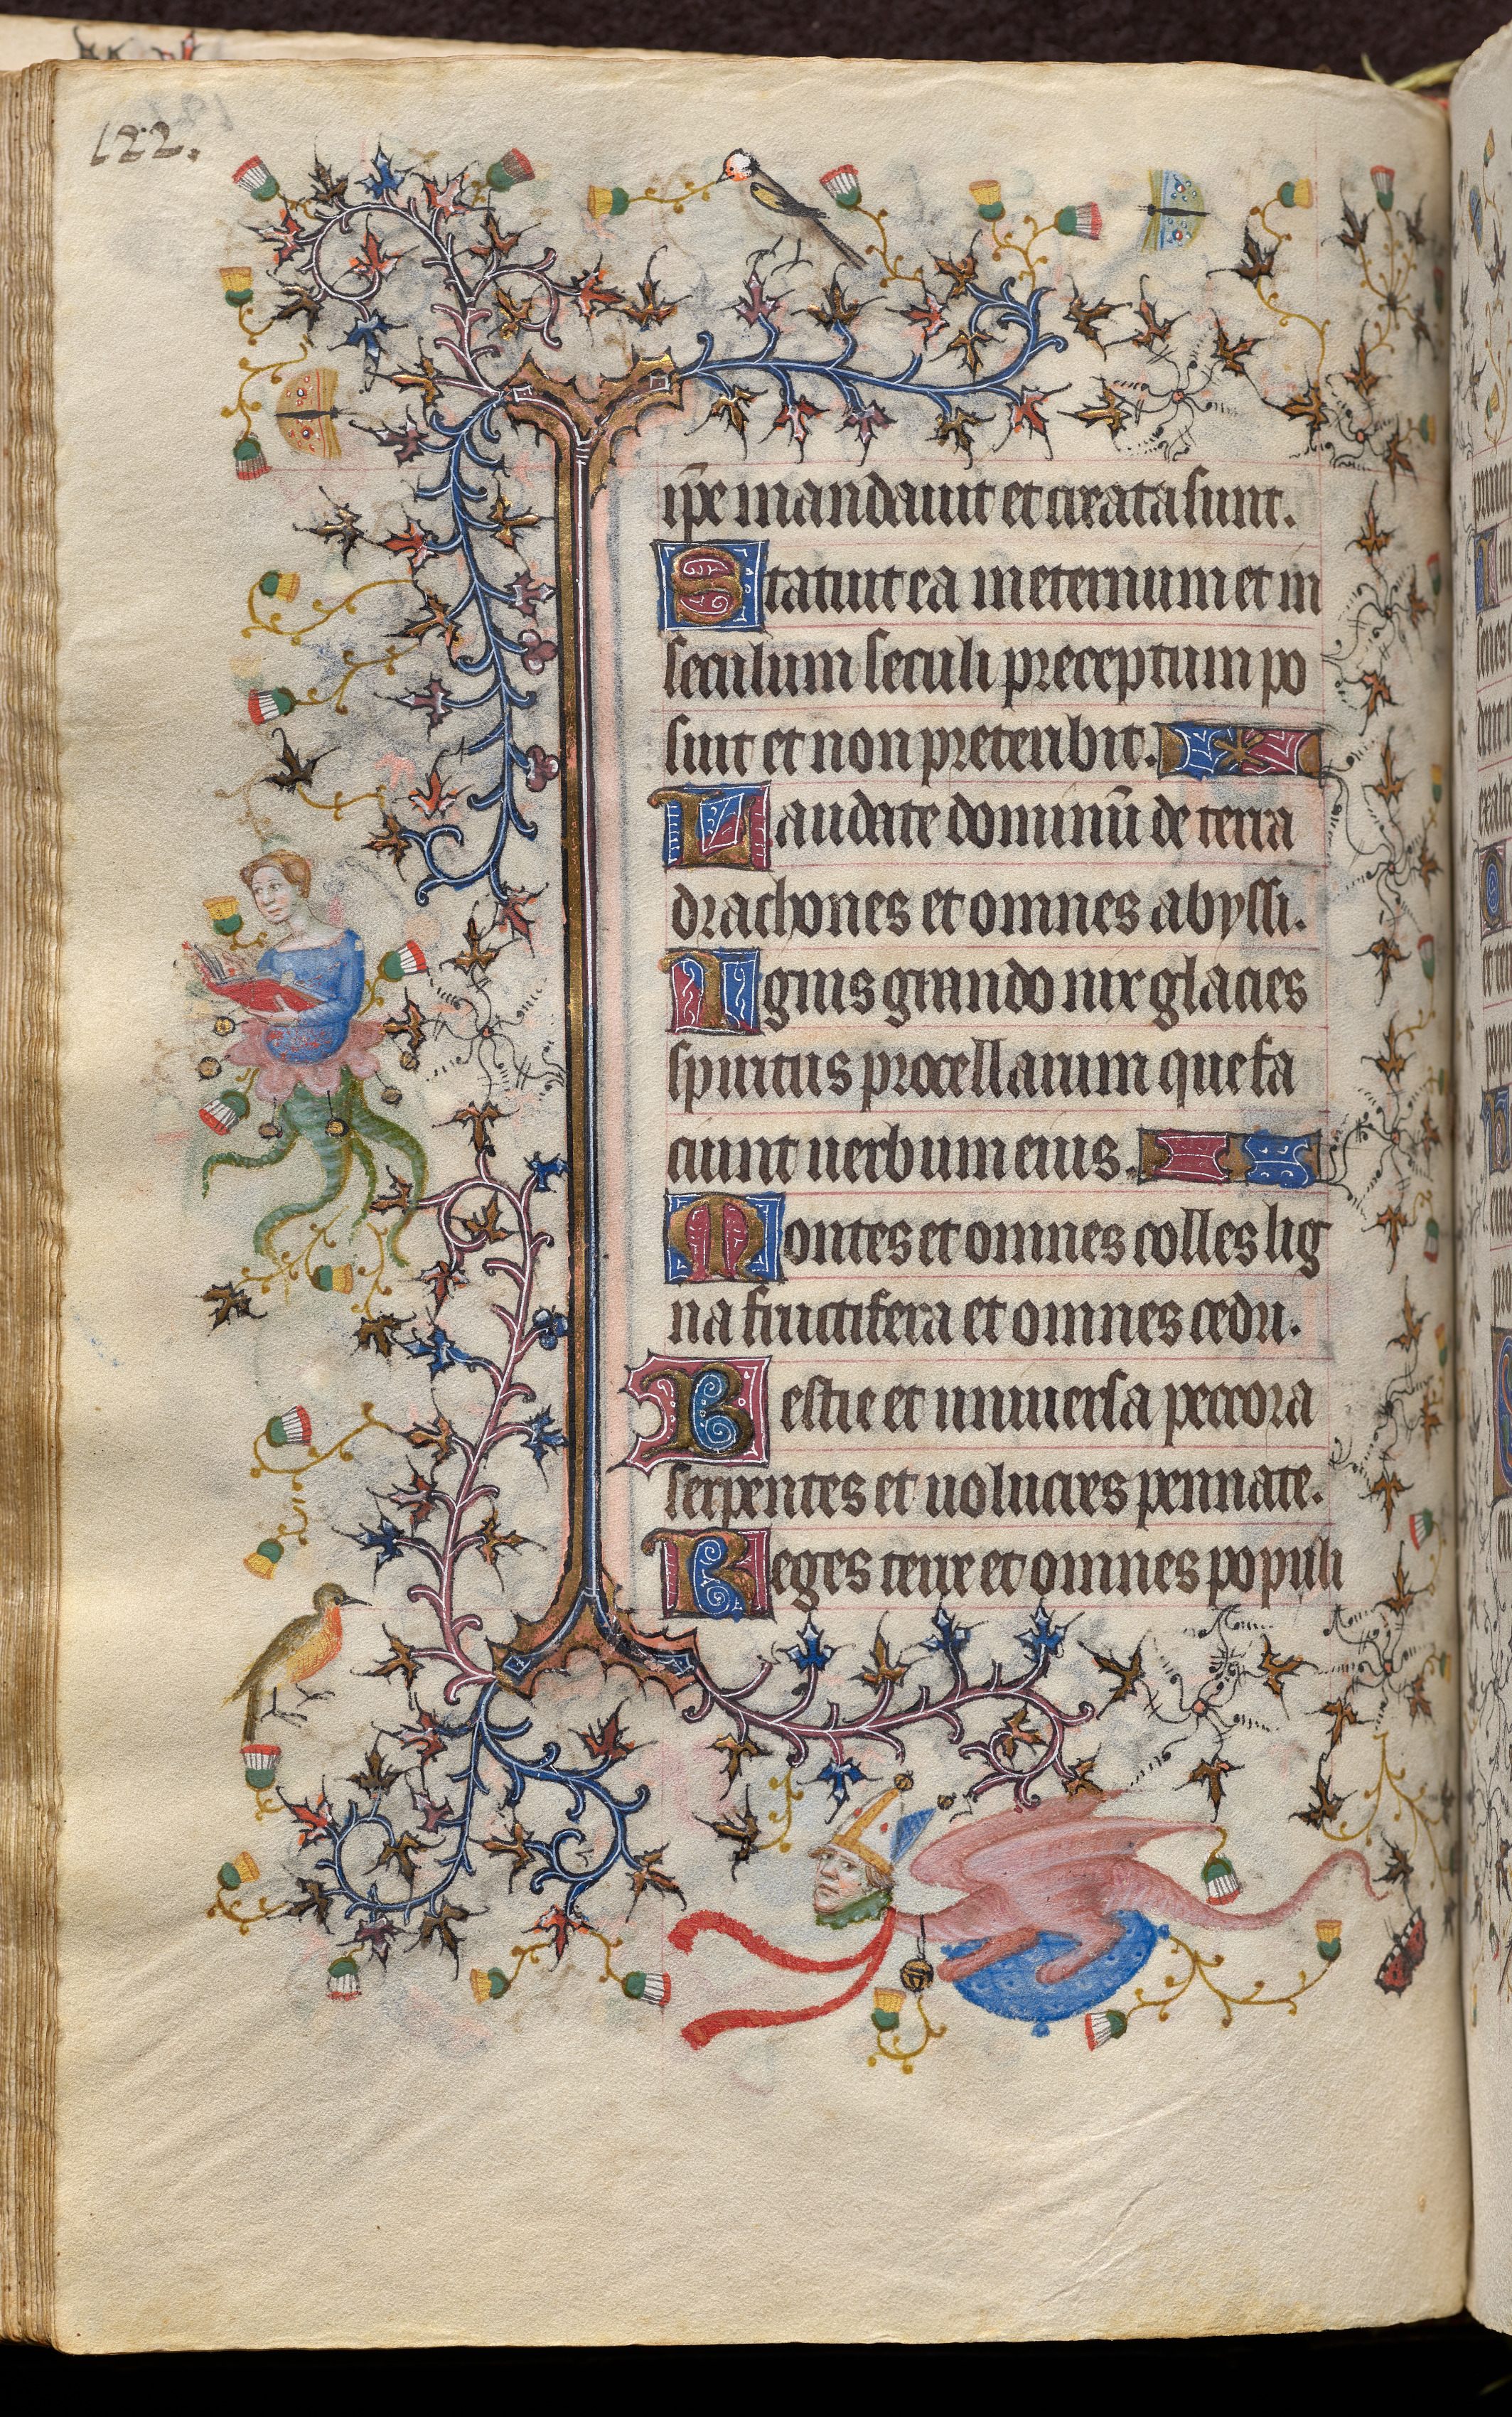 122.
ip̄e mandauit et creata sunt.
Statuit ea in eternum et in
seculum seculi preceptum po
suit et non preteribit.
Laudate dominū de terra
drachones et omnes abyssi.
Ignis grando nix glacies
spiritus procellarum que fa
ciunt uerbum eius.
Montes et omnes colles lig
na fructifera et omnes cedri.
Bestie et uniuersa peccora
serpentes et uolucres pennate.
Reges terre et omnes populi